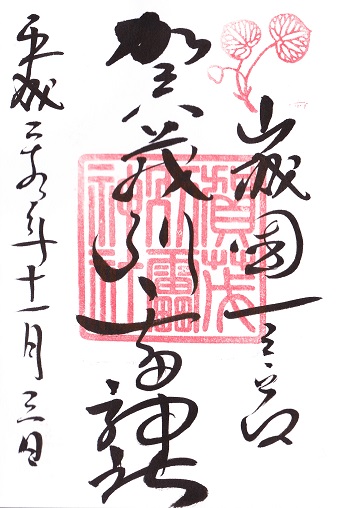 山城國一之宮
賀茂別雷神社
平成二九年十一月三日
賀茂
別雷
神社